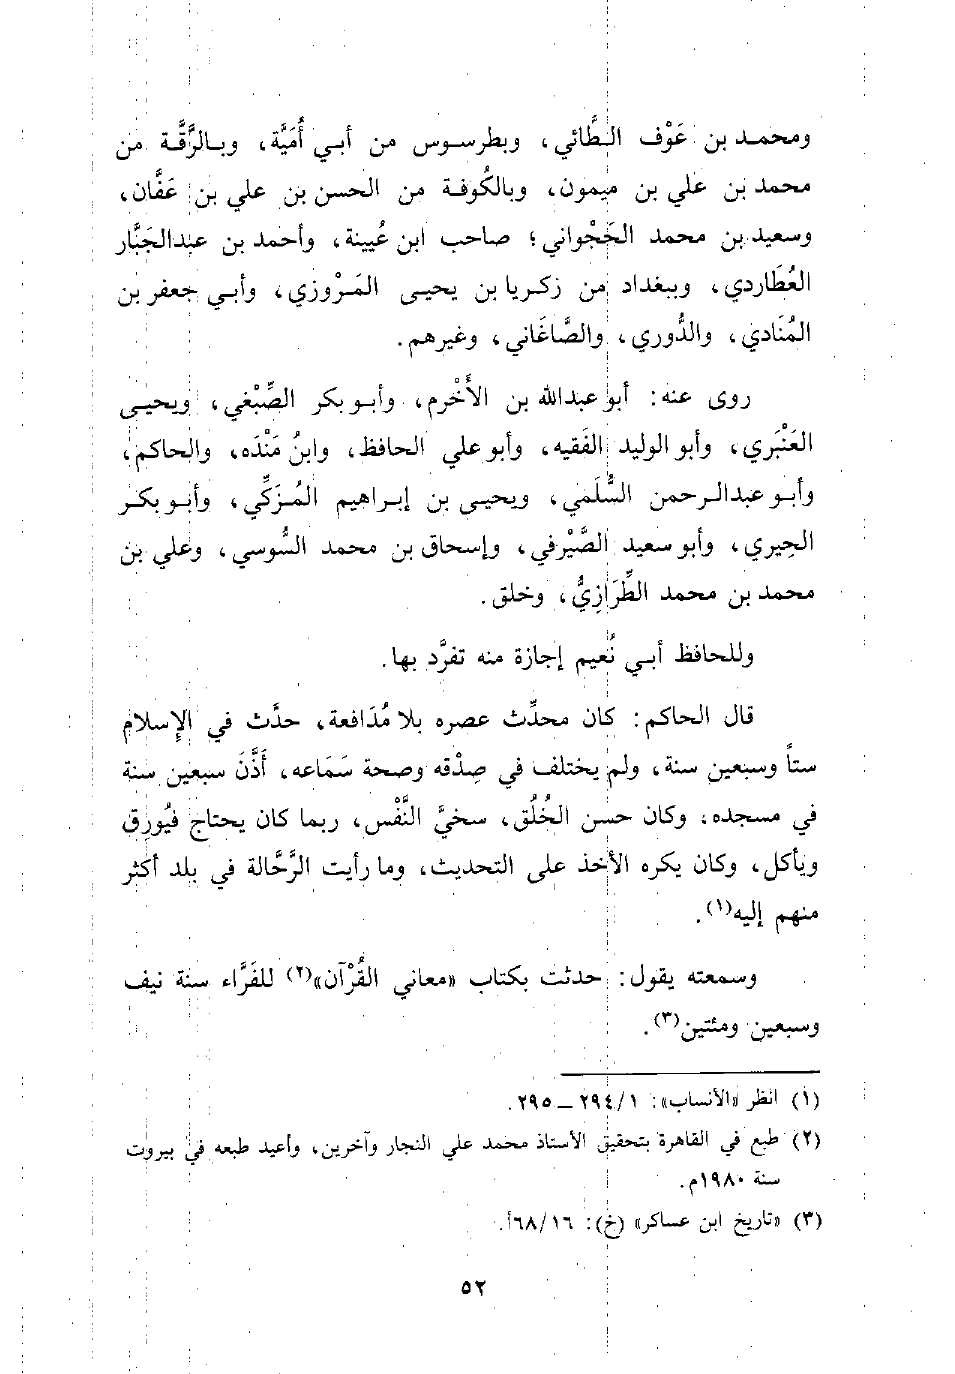 ومحمد بن عَوْف الطَّائي، وبطرسوس من أبي أُمَيَّة، وبالرَّقَّة من
محمد بن علي بن ميمون، وبالكُوفة من الحسن بن علي بن عَفَّان،
وسعيد بن محمد الحَجْواني؛ صاحب ابن عُيينة، وأحمد بن عبدالجَبَّار
العُطَاردي، وببغداد من زكريا بن يحيى المَرْوزي، وأبي جعفر بن
المُنَادي، والدُّوري، والصَّاغَاني، وغيرهم.
روى عنه: أبو عبدالله بن الأَخْرم، وأبو بكر الصِّبْغي، ويحيى
العَنْبَري، وأبو الوليد الفَقيه، وأبو علي الحافظ، وابنُ مَنْدَه، والحاكم،
وأبو عبدالرحمن السُّلَمي، ويحيى بن إبراهيم المُزَكِّي، وأبو بكر
الحِيري، وأبو سعيد الصَّيْرفي، وإسحاق بن محمد السُّوسي، وعلي بن
محمد بن محمد الطِّرَازِيُّ، وخلق.
وللحافظ أبي نُعيم إجازة منه تفرَّد بها.
قال الحاكم: كان محدِّث عصره بلا مُدَافعة، حدَّث في الإِسلام
ستاً وسبعين سنة، ولم يختلف في صِدْقه وصحة سَمَاعه، أَذَّنَ سبعين سنة
في مسجده، وكان حسن الخُلُق، سخيَّ النَّفْس، ربما كان يحتاج فيُورِق
ويأكل، وكان يكره الأخذ على التحديث، وما رأيت الرَّحَّالة في بلد أكثر
منهم إليه(١).
وسمعته يقول: حدثت بكتاب «معاني القُرْآن»(٢) للفَرَّاء سنة نيف
وسبعين ومئتين(٣).
(١) انظر «الأنساب»: ٢٩٤/١ ـ ٢٩٥.
(٢) طبع في القاهرة بتحقيق الأستاذ محمد علي النجار وآخرين، وأعيد طبعه في بيروت
سنة ١٩٨٠م.
(٣) «تاريخ ابن عساكر» (خ): ٦٨/١٦أ.
٥٢